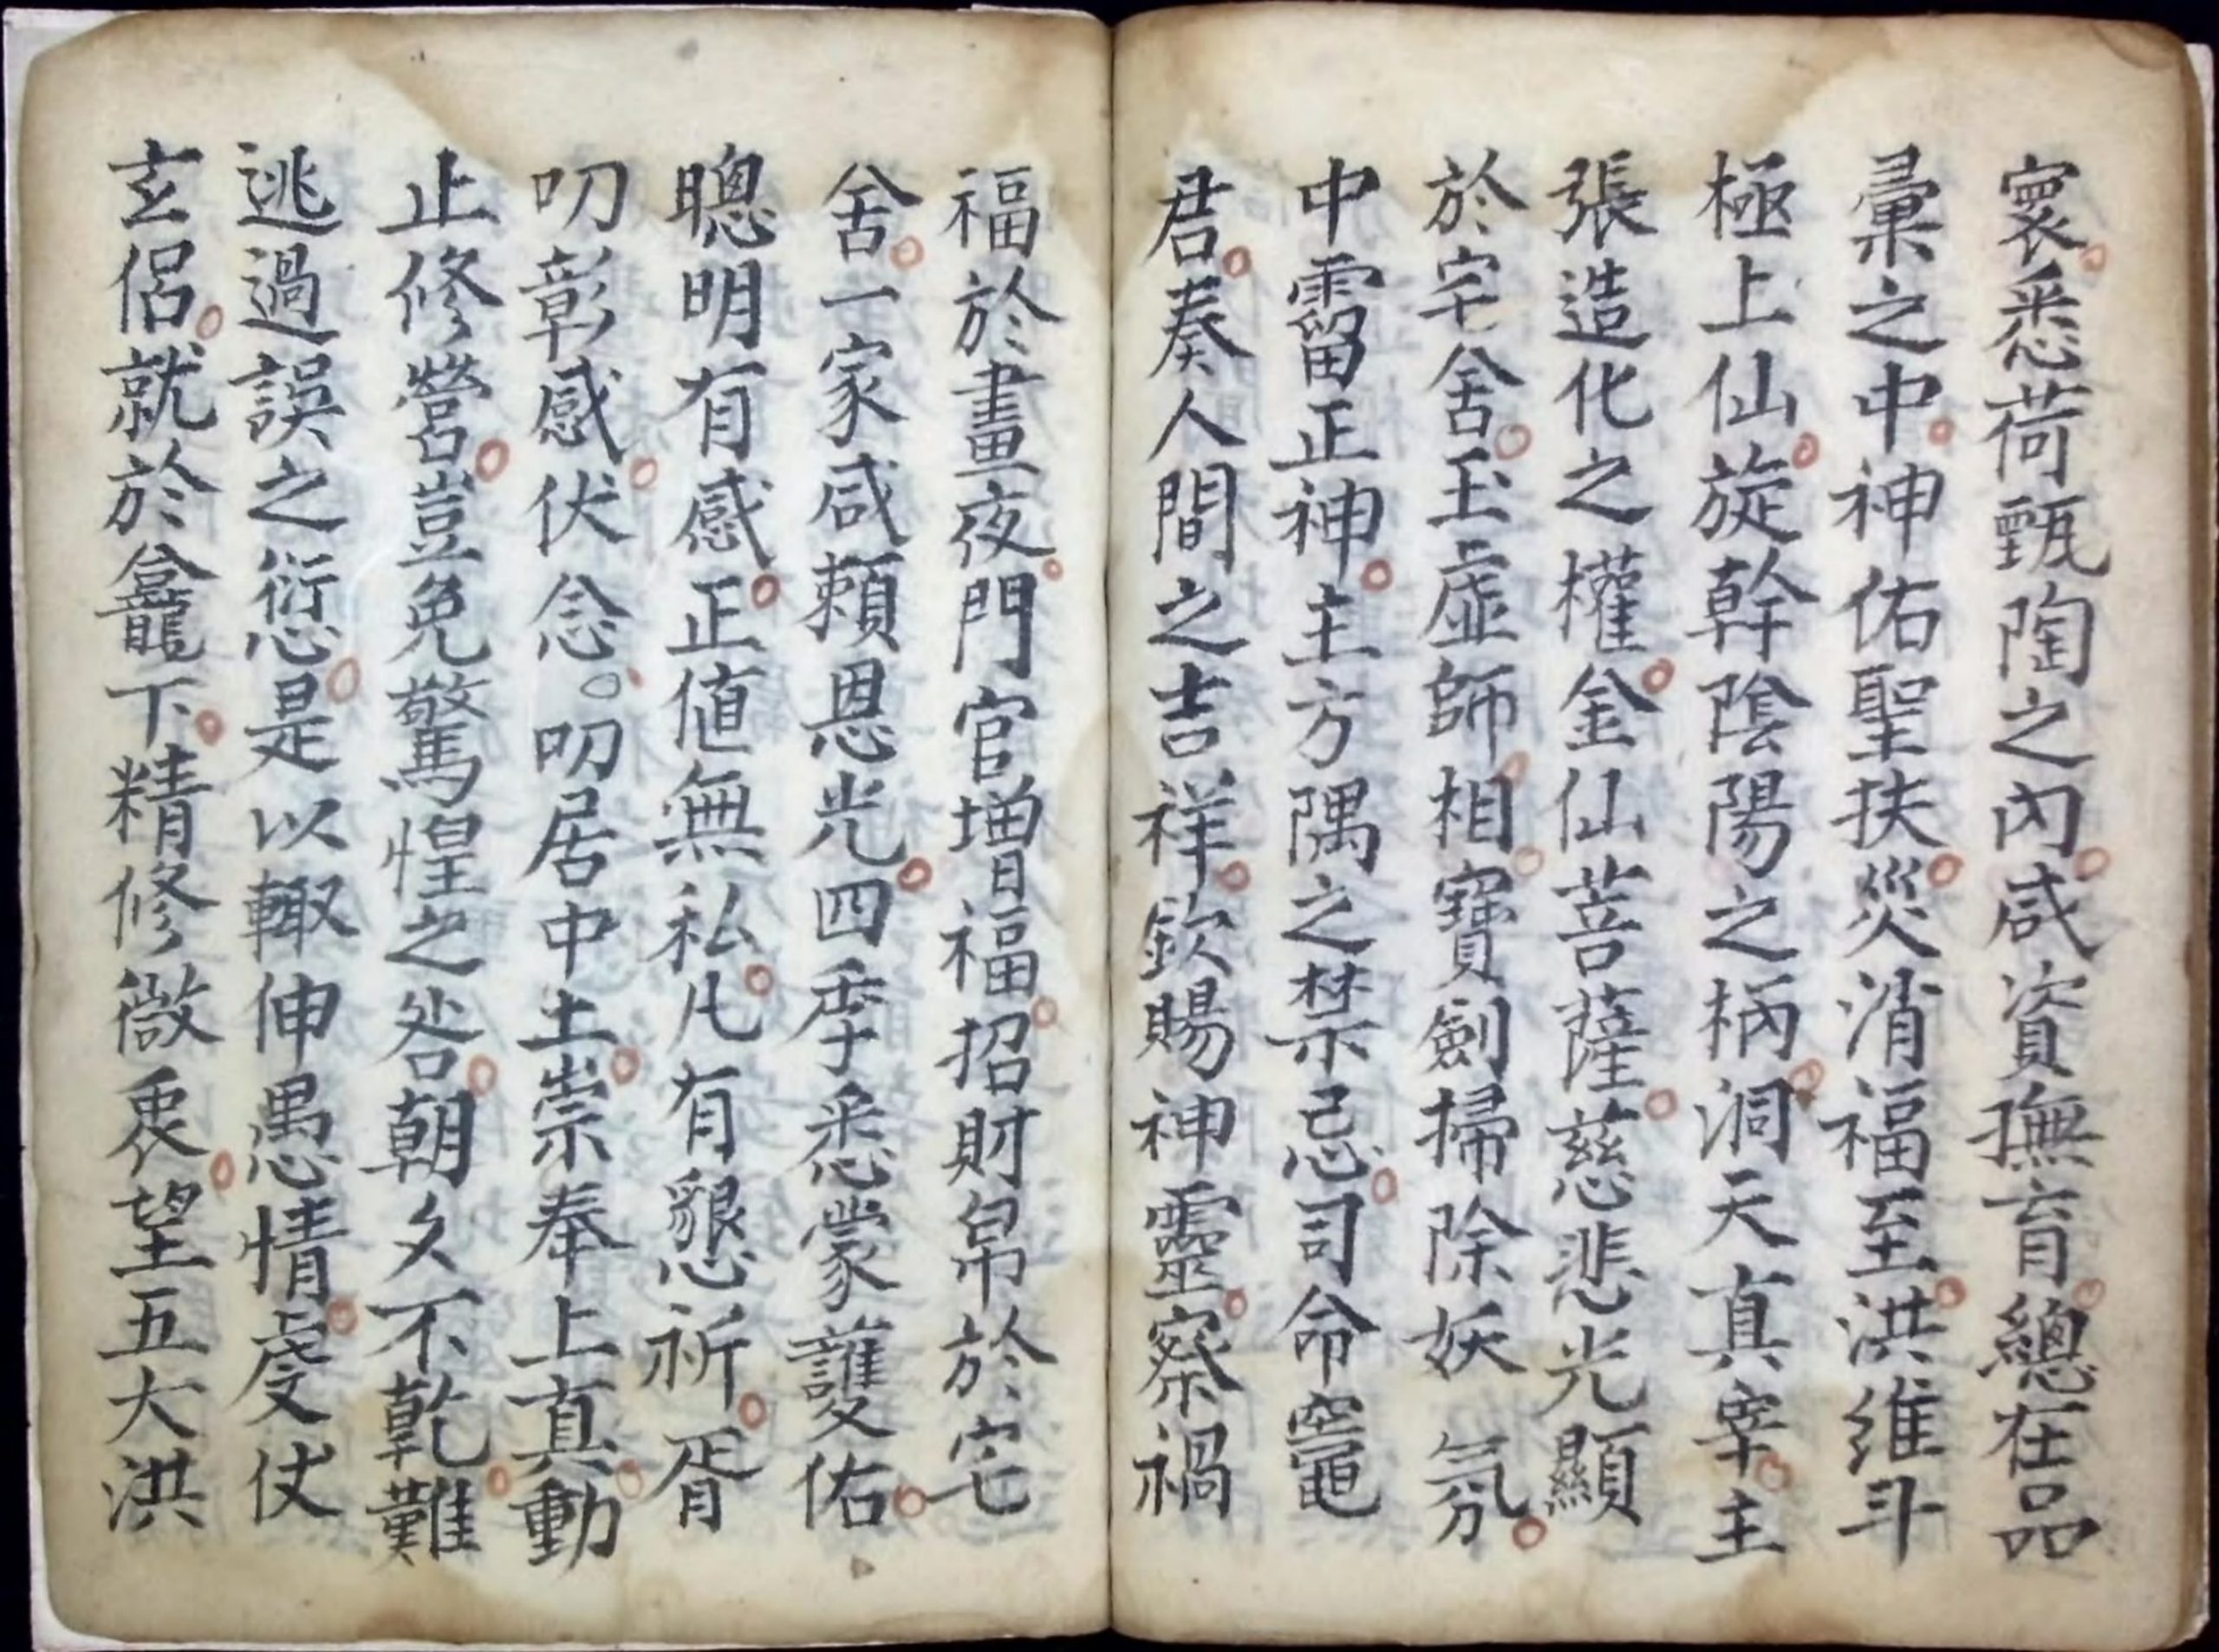 寰悉荷甄陶之內咸資撫育總在品
彙之中神佑聖扶災消福至洪維斗
極上仙旋斡陰陽之柄洞天真宰主
張造化之權金仙菩薩慈悲光顯
於宅舍玉虛師相寶劍掃除妖氛
中霤正神主方隅之禁忌司命竈
君奏人間之吉祥欽賜神靈察禍
福於晝夜門官增福招財帛於宅
舍一家咸賴恩光四季悉蒙護佑
聰明有感正值無私凡有懇祈胥
叨彰感伏念。叨居中土崇奉上真動
止修營豈免驚惶之咎朝夕不乾難
逃過誤之愆是以輙伸愚情虔仗
玄侶就於龕下精修微衷望五大洪